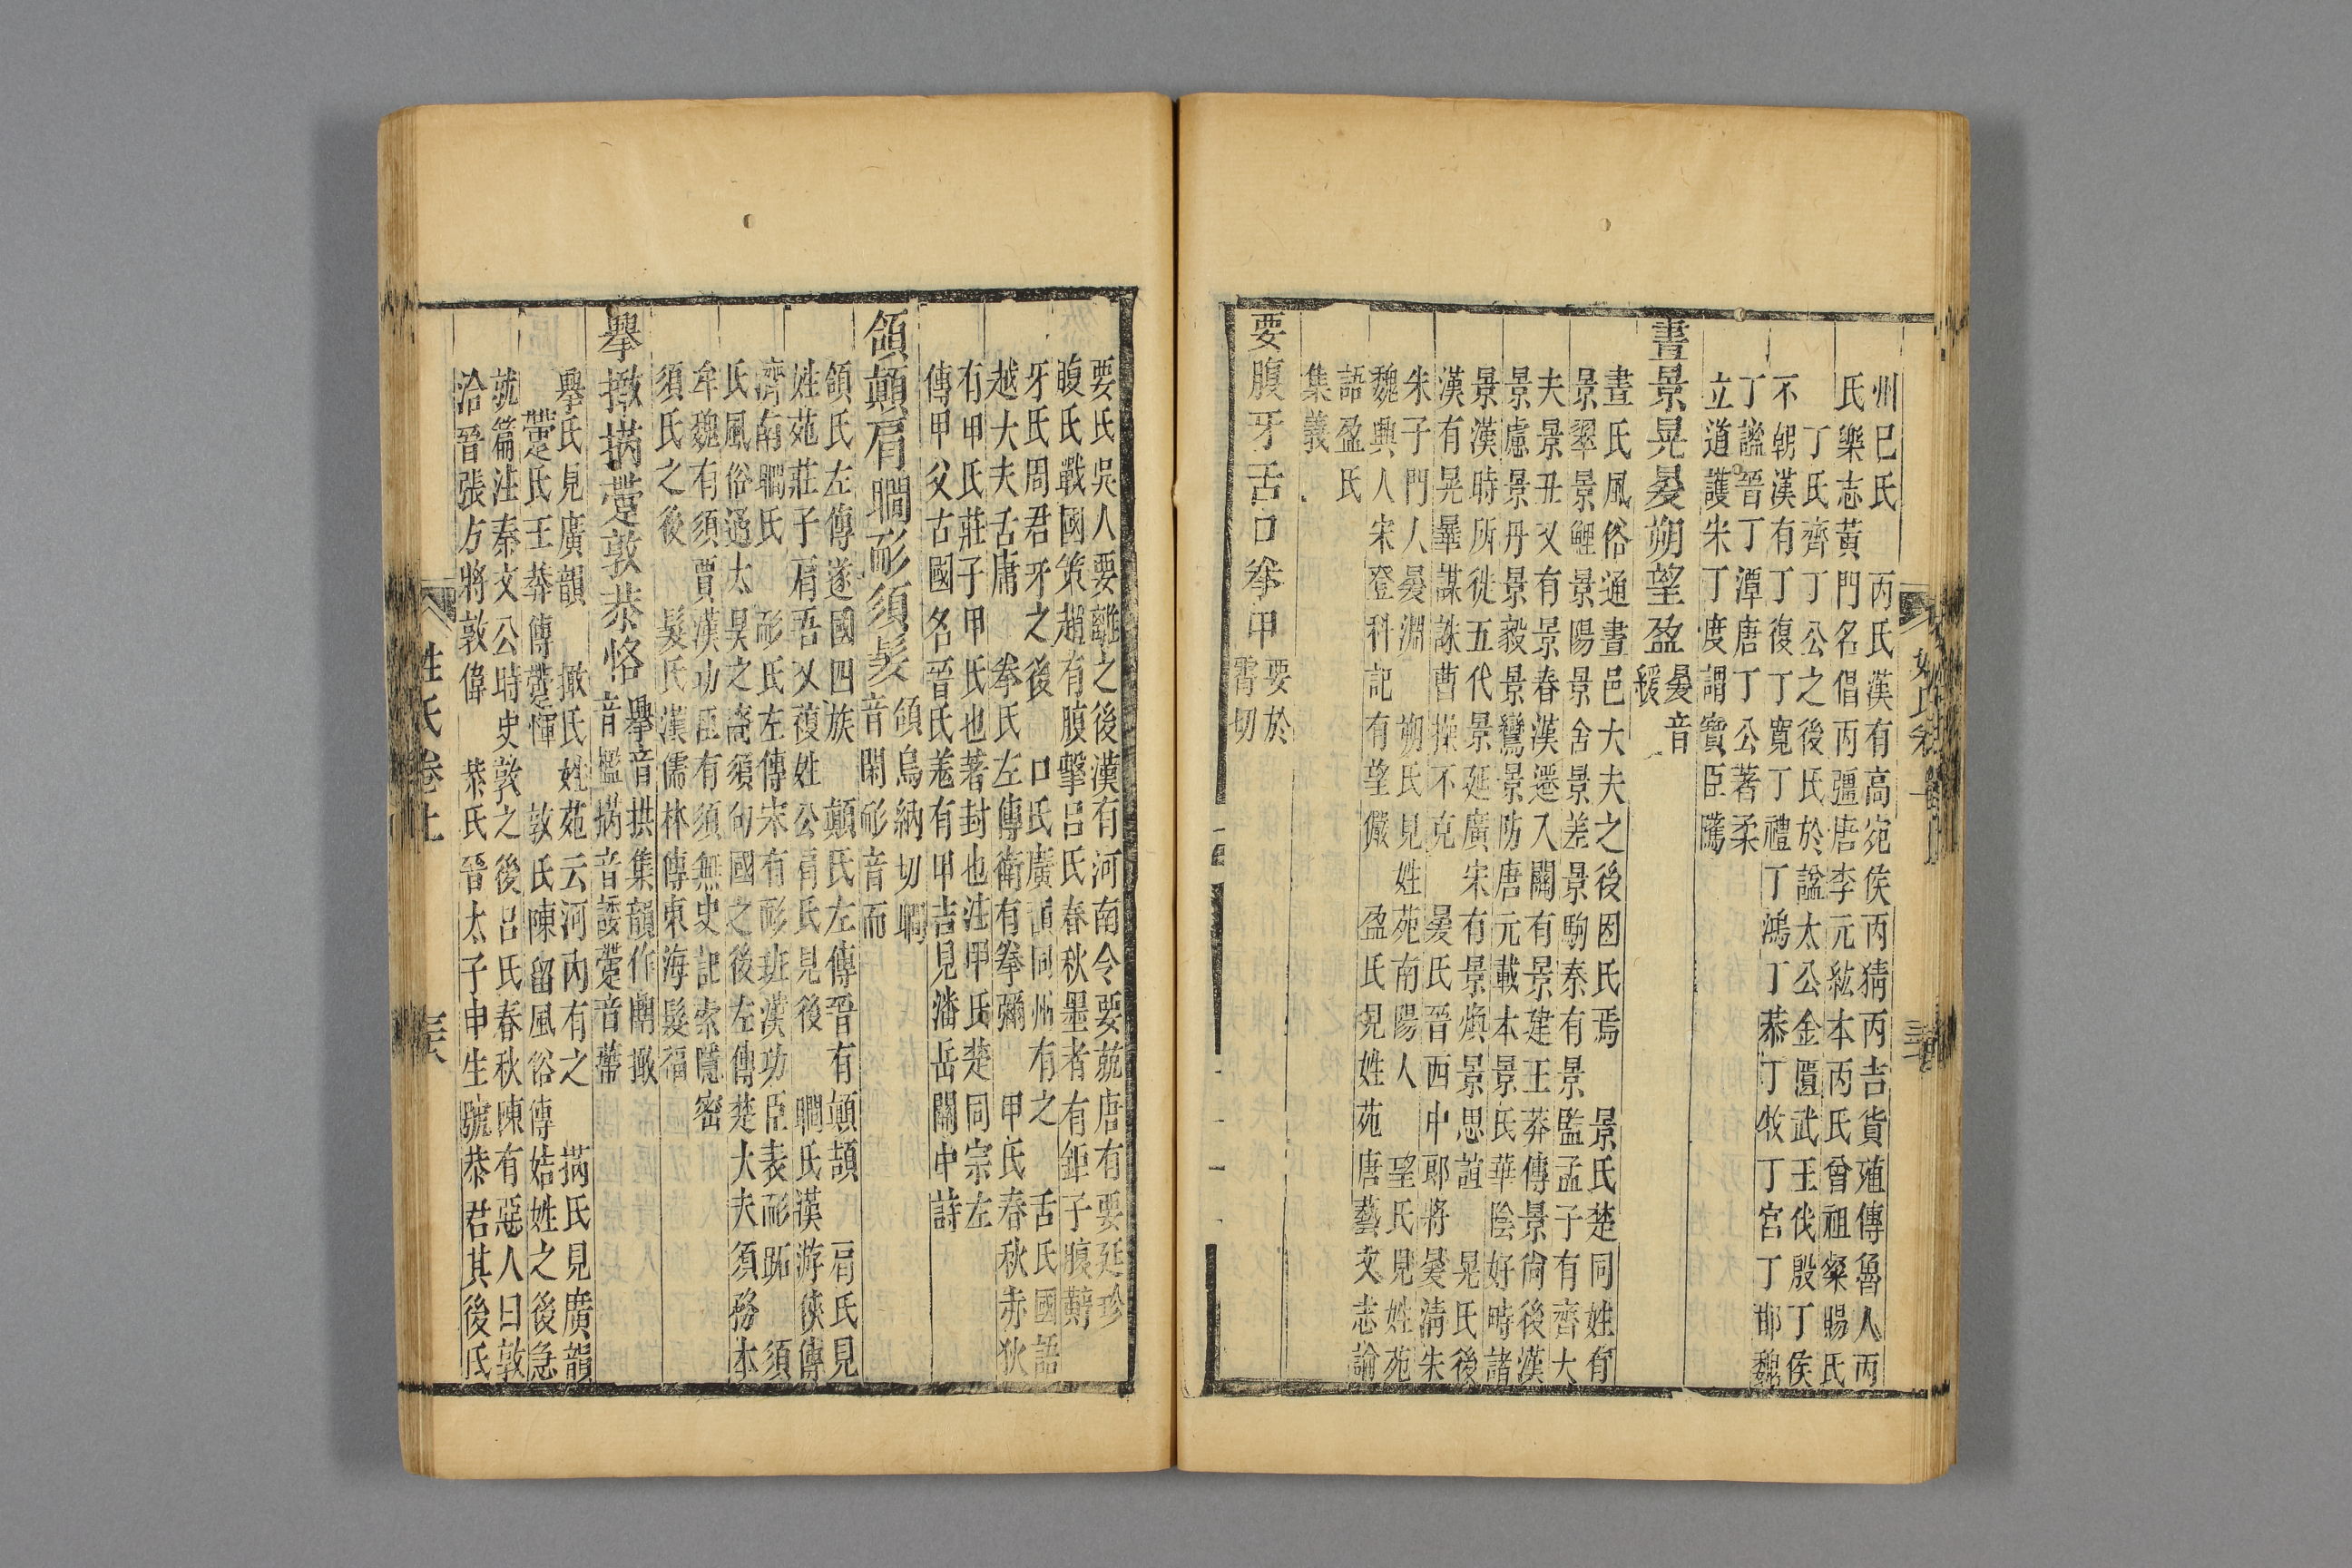 州巳氏　丙氏漢有高宛侯丙猜丙吉貨殖傳魯人丙
氏樂志黃門名倡丙彊唐李元紘本丙氏曾祖粲賜氏
丁氏齊丁公之後氏於諡太公金匱武王伐殷丁侯
不朝漢有丁復丁寬丁禮丁鴻丁恭丁牧丁宮丁邯魏
丁謐晉丁潭唐丁公著柔
立道護朱丁度謂寶臣隲
晝景晃㬊朔望盈㬊音緩
晝氏風俗通晝邑大夫之後因氏焉　景氏楚同姓有
景翠景鯉景陽景舍景差景駒秦有景監孟子有齊大
夫景丑又有景春漢遷入關有景建王莽傳景尚後漢
景慮景丹景毅景鸞景防唐元載本景氏華陰好時諸
景漢時所徙五代景延廣宋有景煥景思誼　晃氏後
漢有晃華謀誅曹操不克　㬊氏晉西中郎將㬊清朱
朱子門人㬊淵　朔氏見姓苑南陽人　望氏見姓苑
魏興人宋登科記有望儼　盈氏見姓苑唐藝文志論
語盈氏
集義
要腹牙舌口拳甲要於霄切
要氏吳人要離之後漢有河南令要兢唐有要廷珍
腹氏戰國策趙有腹擊呂氏春秋墨者有鉅子腹䵍
牙氏周君牙之後　口氏廣韻同州有之　舌氏國語
越大夫舌庸　拳氏左傳衛有拳彌　甲氏春秋赤狄
有甲氏莊子甲氏也著封也注甲氏楚同宗左
傳甲父古國名晉氏羌有甲吉見潘岳關中詩
頷顛肩瞯耏須髮頷烏納切瞯音閑耏音而
頷氏左傳遂國四族　顛氏左傳晉有顛頡　肩氏見
姓苑莊子肩吾又複姓公肩氏見後　瞯氏漢游俠傳
濟南瞯氏　耏氏左傳宋有耏班漢功臣表耏跖　須
氏風俗通太昊之裔須句國之後左傳楚大夫須務本
牟魏有須賈漢功臣有須無史記索隱密
須氏之後　髮氏漢儒林傳東海髮福
擧撖㨫躗敦恭恪擧音拱集韻作䦛撖音檻㨫音諉躗音蔕
擧氏見廣韻　撖氏姓苑云河內有之　㨫氏見廣韻
躗氏王莽傳躗惲　敦氏陳留風俗傳姞姓之後急
就篇注秦文公時史敦之後呂氏春秋陳有惡人曰敦
洽晉張方將敦偉　恭氏晉太子申生號恭君其後氏
姓氏卷上